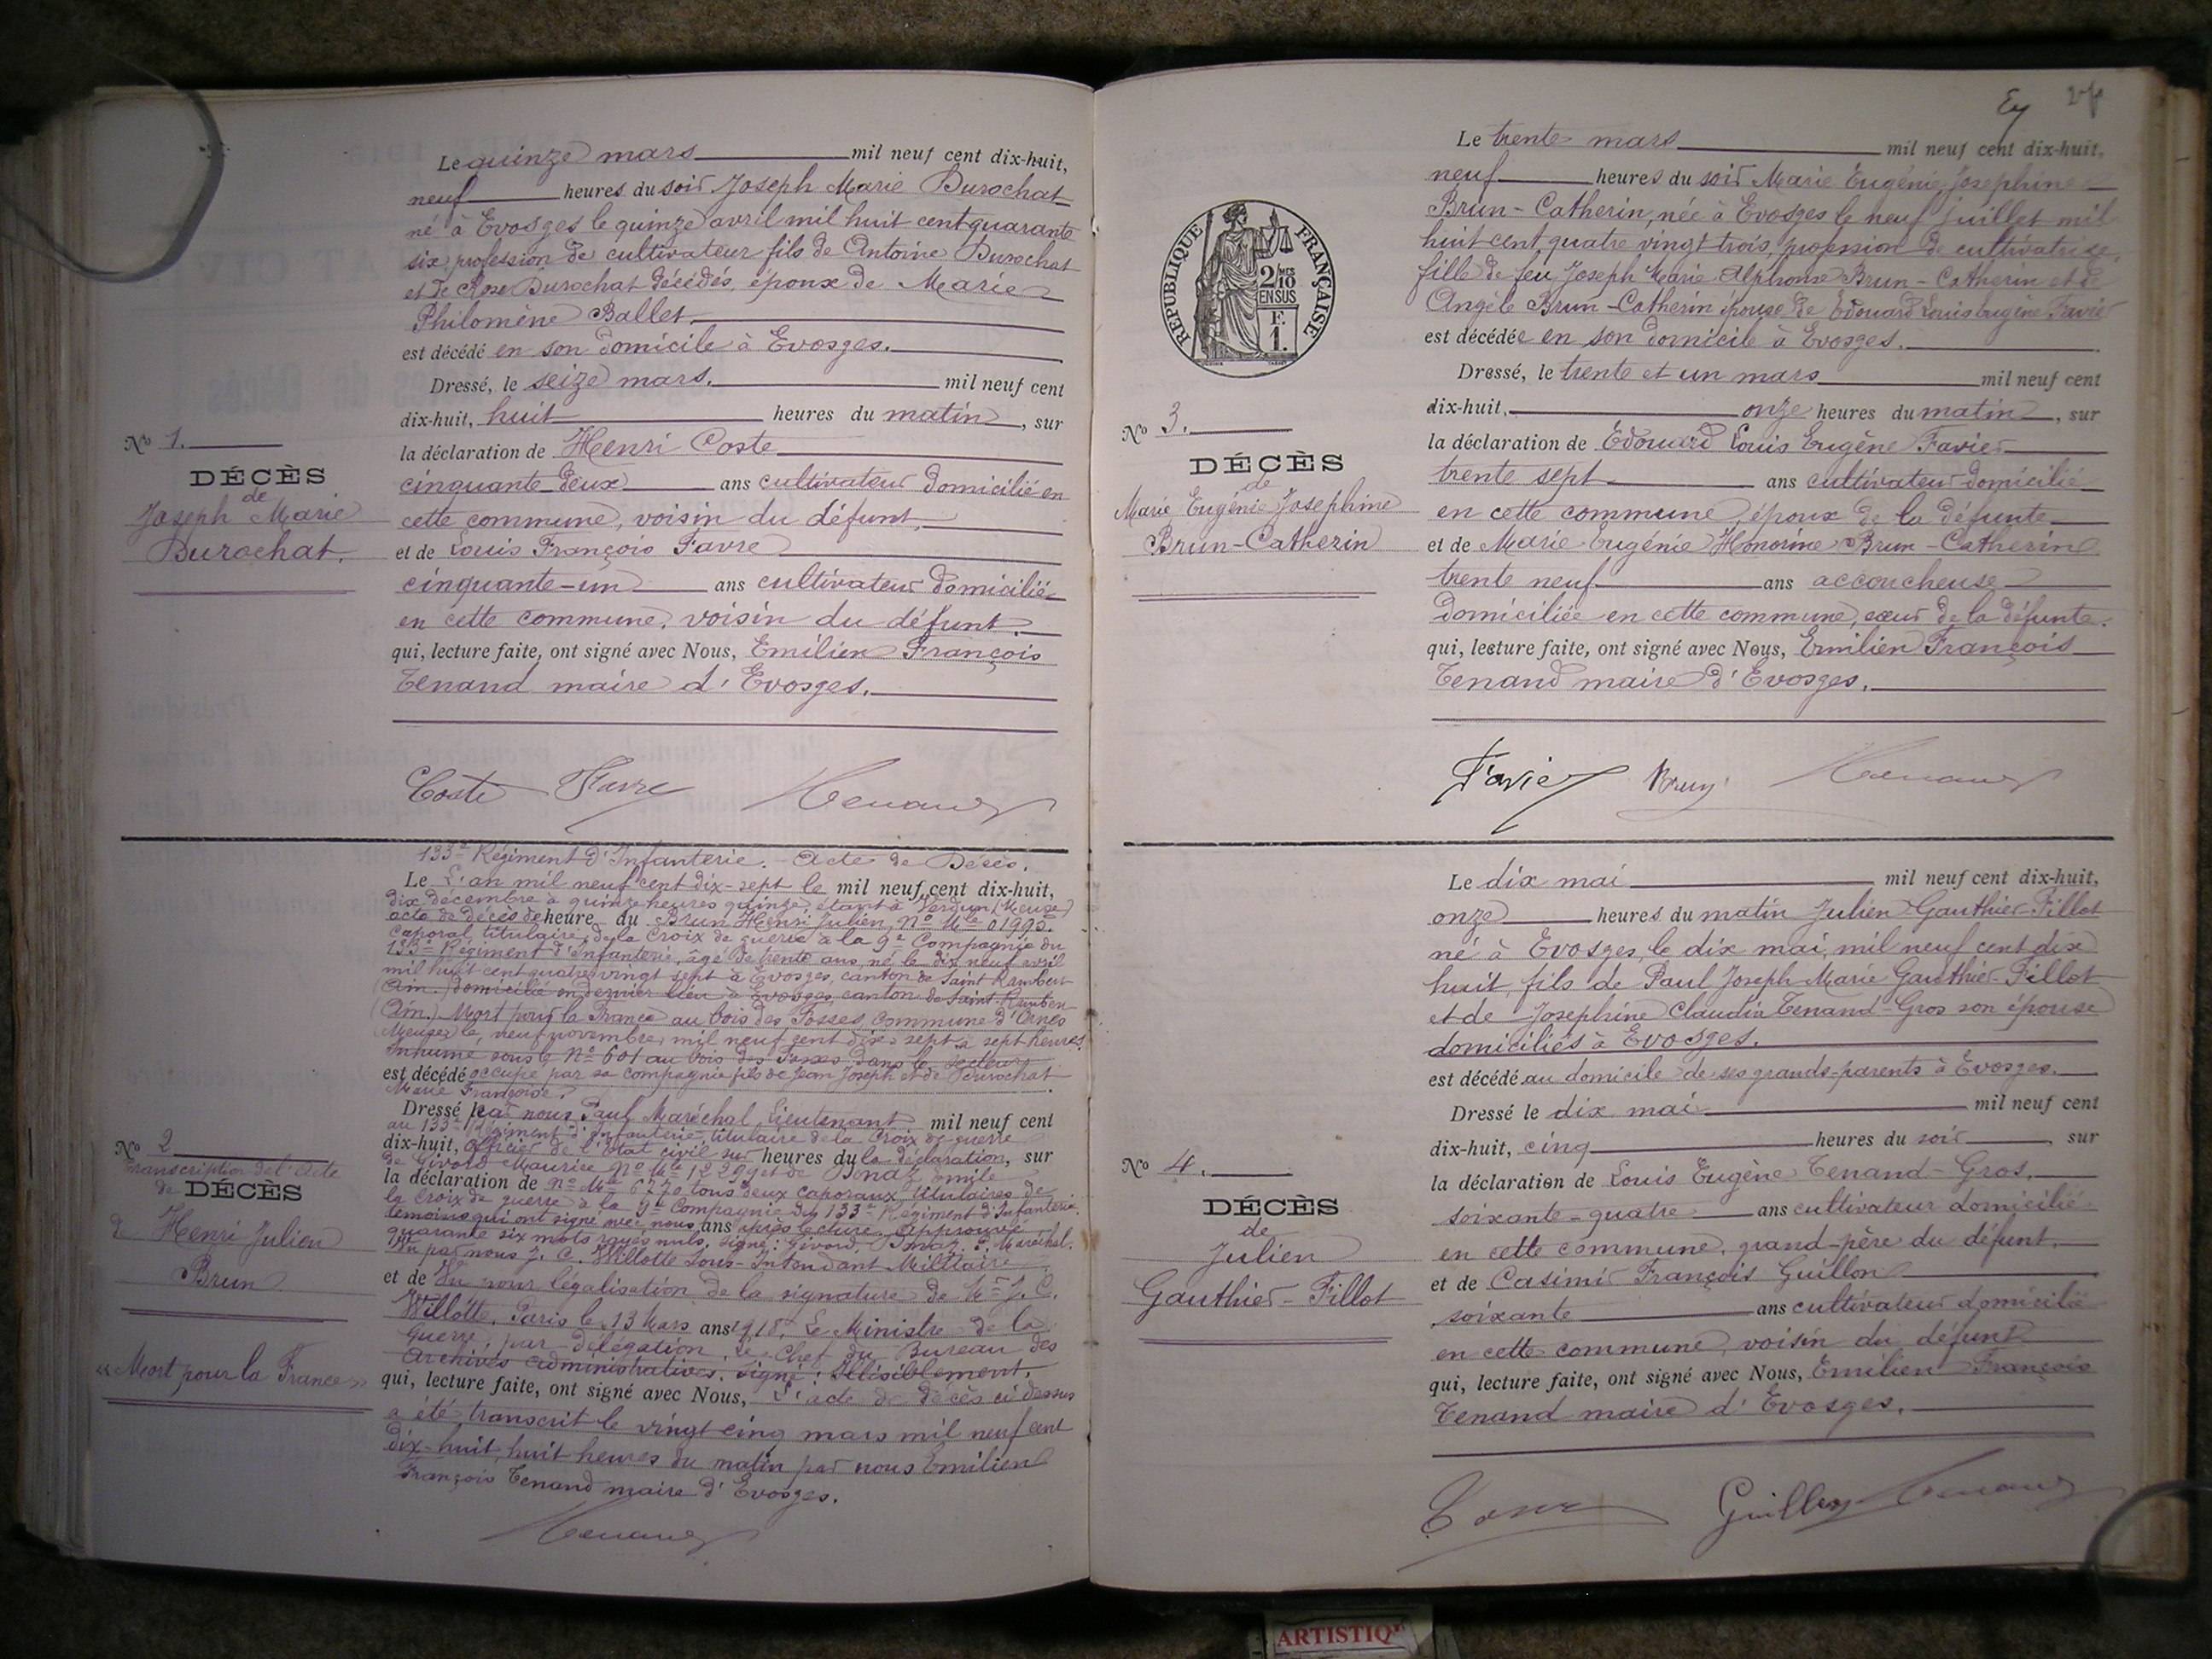 Le quinze mars mil neuf cent dix-huit,
neuf heures du soir Joseph Marie Durochat
né à Evosges le quinze avril mil huit cent quarante
six, profession de cultivateur fils de Antoine Durochat
et de Rose Durochat décédés, époux de Marie
Philomène Ballet
est décédé en son domicile à Evosges.
Dressé, le seize mars, mil neuf cent
dix-huit, huit heures du matin, sur
la déclaration de Henri Coste
cinquante deux ans cultivateur domicilié en
cette commune, voisin du défunt,
et de Louis François Favre
cinquante-un ans cultivateur domicilié
en cette commune, voisin du défunt,
qui, lecture faite, ont signé avec Nous, Emilien François
Tenand maire d'Evosges.
Coste Favre Tenand
No 1.
DÉCÈS
de
Joseph Marie
Durochat.
133e Régiment d'Infanterie. - Acte de Décès.
Le L'an mil neuf cent dix-sept le mil neuf cent dix-huit,
dix décembre à quinze heures quinze, étant à Verdun (Meuse)
acte de décès de heure du Brun Henri Julien, No Mle 01995.
caporal, titulaire de la Croix de guerre à la 9e Compagnie du
133e Régiment d'Infanterie, âgé de trente ans, né le dix neuf avril
mil huit cent quatre vingt sept à Evosges, canton de Saint Rambert
(Ain.) domicilié en dernier lieu à Evosges canton de Saint-Rambert
(Ain.) Mort pour la France au bois des Fosses, commune d'Ornes
(Meuse) le, neuf novembre, mil neuf cent dix-sept à sept heures.
Inhumé sous le No 601 au bois des Fosses dans le secteur
est décédé occupé par sa compagnie fils de Jean Joseph et de Durochat
Marie Françoise.
Dressé par nous, Paul Maréchal, Lieutenant mil neuf cent
au 133e Régiment d'Infanterie, titulaire de la Croix de guerre
dix-huit, Officier de l'Etat civil sur heures du la déclaration, sur
de Givord Maurice No Mle 12299 et de Bonaz Emile
la déclaration de No Mle 6270 tous deux caporaux, titulaires de
la Croix de guerre à la 9e Compagnie du 133e Régiment d'Infanterie.
témoins qui ont signé avec nous ans après lecture. Approuvé
quarante six mots rayés nuls. signé: Givord, Bonaz, P. Maréchal.
Vu par nous J. C. Willotte Sous-Intendant Militaire
et de Vu pour légalisation de la signature de Mr J. C.
Willotte, Paris le 13 Mars ans 1918, Le Ministre de la
Guerre, par délégation, Le Chef du Bureau des
Archives administratives. signé: Illisiblement.
qui, lecture faite, ont signé avec Nous, L'acte de décès ci dessus
a été transcrit le vingt cinq mars mil neuf cent
dix-huit, huit heures du matin par nous Emilien
François Tenand maire d'Evosges.
Tenand
No 2
Transcription de l'acte
de DÉCÈS
de Henri Julien
Brun
«Mort pour la France»
Le trente mars mil neuf cent dix-huit,
neuf heures du soir Marie Eugénie Josephine
Brun-Catherin, née à Evosges le neuf juillet mil
huit cent quatre vingt trois, profession de cultivatrice,
fille de feu Joseph Marie Alphonse Brun-Catherin et de
Angèle Brun-Catherin épouse de Edouard Louis Eugène Favier
est décédée en son domicile à Evosges.
Dressé, le trente et un mars mil neuf cent
dix-huit, onze heures du matin, sur
la déclaration de Edouard Louis Eugène Favier
trente sept ans cultivateur domicilié
en cette commune, époux de la défunte
et de Marie Eugénie Honorine Brun-Catherin
trente neuf ans accoucheuse
domiciliée en cette commune, sœur de la défunte.
qui, lecture faite, ont signé avec Nous, Emilien François
Tenand maire d'Evosges.
Favier Brun Tenand
REPUBLIQUE FRANÇAISE
2 MES
10
EN SUS
F.
1.
No 3.
DÉCÈS
de
Marie Eugénie Josephine
Brun-Catherin
Le dix mai mil neuf cent dix-huit,
onze heures du matin Julien Gauthier-Fillot
né à Evosges, le dix mai, mil neuf cent dix
huit, fils de Paul Joseph Marie Gauthier-Fillot
et de Josephine Claudia Tenand-Gros son épouse
domiciliés à Evosges.
est décédé au domicile de ses grands-parents à Evosges.
Dressé le dix mai mil neuf cent
dix-huit, cinq heures du soir, sur
la déclaration de Louis Eugène Tenand-Gros,
soixante-quatre ans cultivateur domicilié
en cette commune, grand-père du défunt,
et de Casimir François Guillon
soixante ans cultivateur domicilié
en cette commune, voisin du défunt
qui, lecture faite, ont signé avec Nous, Emilien François
Tenand maire d'Evosges.
Guillon Tenand
No 4.
DÉCÈS
de
Julien
Gauthier-Fillot
ARTISTIQ